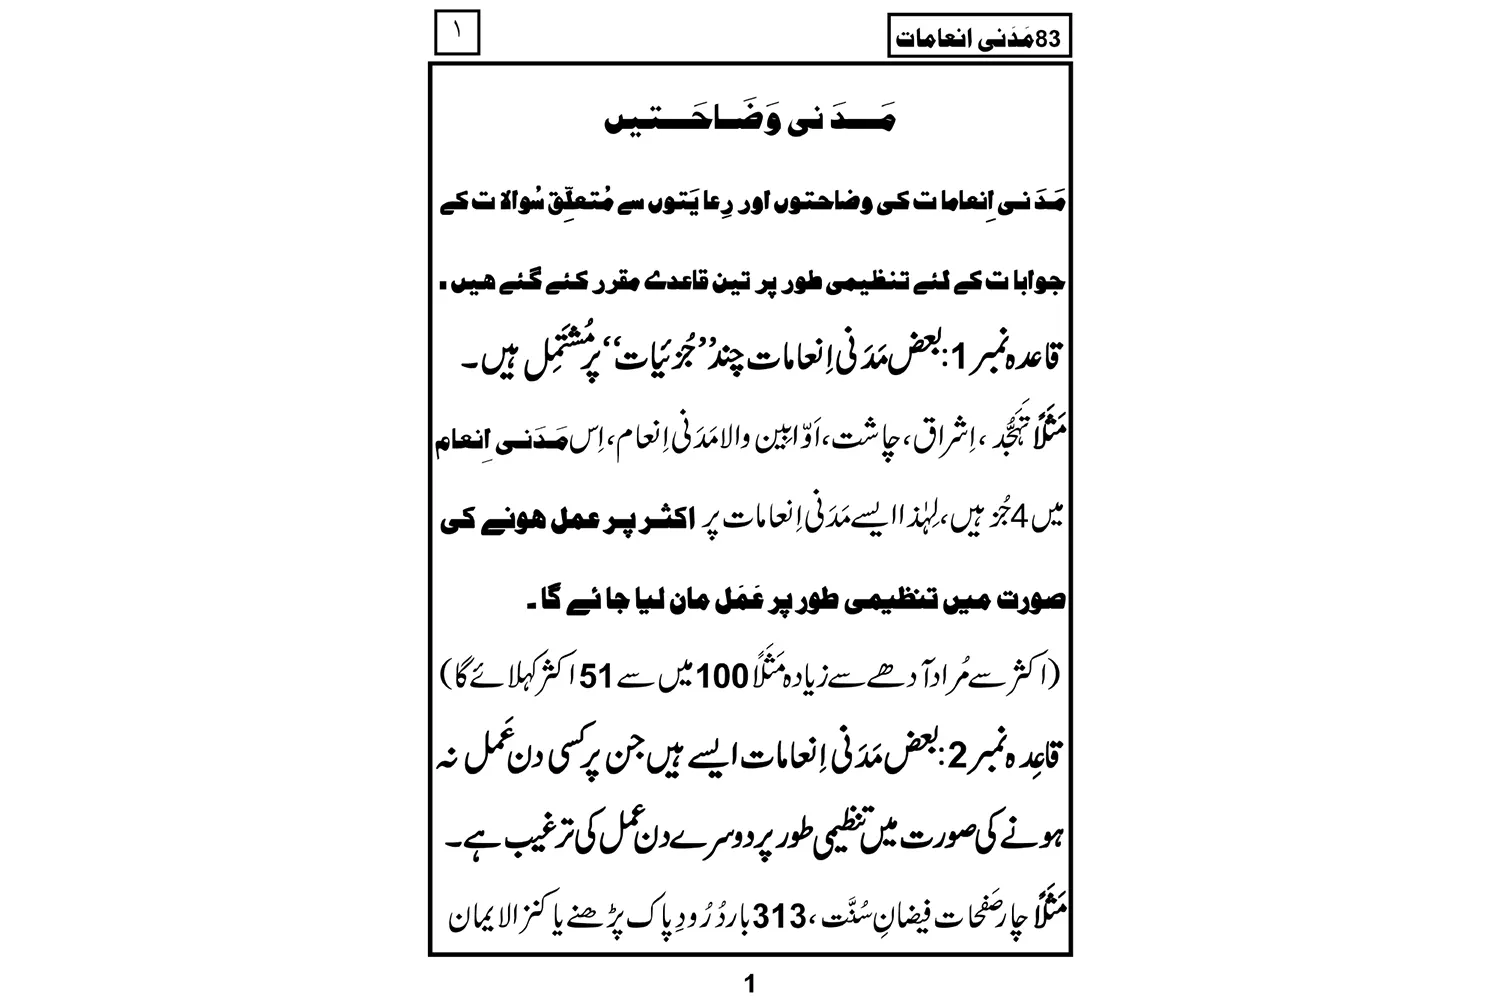 83مَدَنی انعامات
۱
مَـــدَ نی وَضَـــاحَـــتیں
مَـدَ نـی اِنعاما ت کی وضاحتوں اور رِعا یَتوں سے مُتعلّق سُوالا ت کے
جوابا ت کے لئے تنظیمی طور پر تین قاعدے مقرر کئے گئے ھیں .
قاعدہ نمبر 1:بعض مَدَنی اِنعامات چند’’جُزئیات‘‘پر مُشتَمِل ہیں۔
مَثَلاً تَہَجُّد ،اِشراق،چاشت،اَوّابین والا مَدَنی اِنعام،اِس مَـدَنـی اِنعام
میں 4جُز ہیں،لِہٰذا ایسے مَدَنی اِنعامات پر اکثـر پـر عمل ھونے کی
صورت میں تنظیمی طور پر عَمَل مان لیا جا ئے گا ۔
(اکثر سے مُراد آدھے سے زیادہ مَثَلًا 100میں سے 51 اکثر کہلائے گا)
قاعِدہ نمبر 2:بعض مَدَنی اِنعامات ایسے ہیں جن پر کسی دن عَمل نہ
ہونے کی صورت میں تنظیمی طور پر دوسرے دن عمل کی ترغیب ہے۔
مَثَلًا چار صَفحات فیضانِ سُنَّت ،313بار دُرُودِ پاک پڑھنے یا کنز الایمان
1